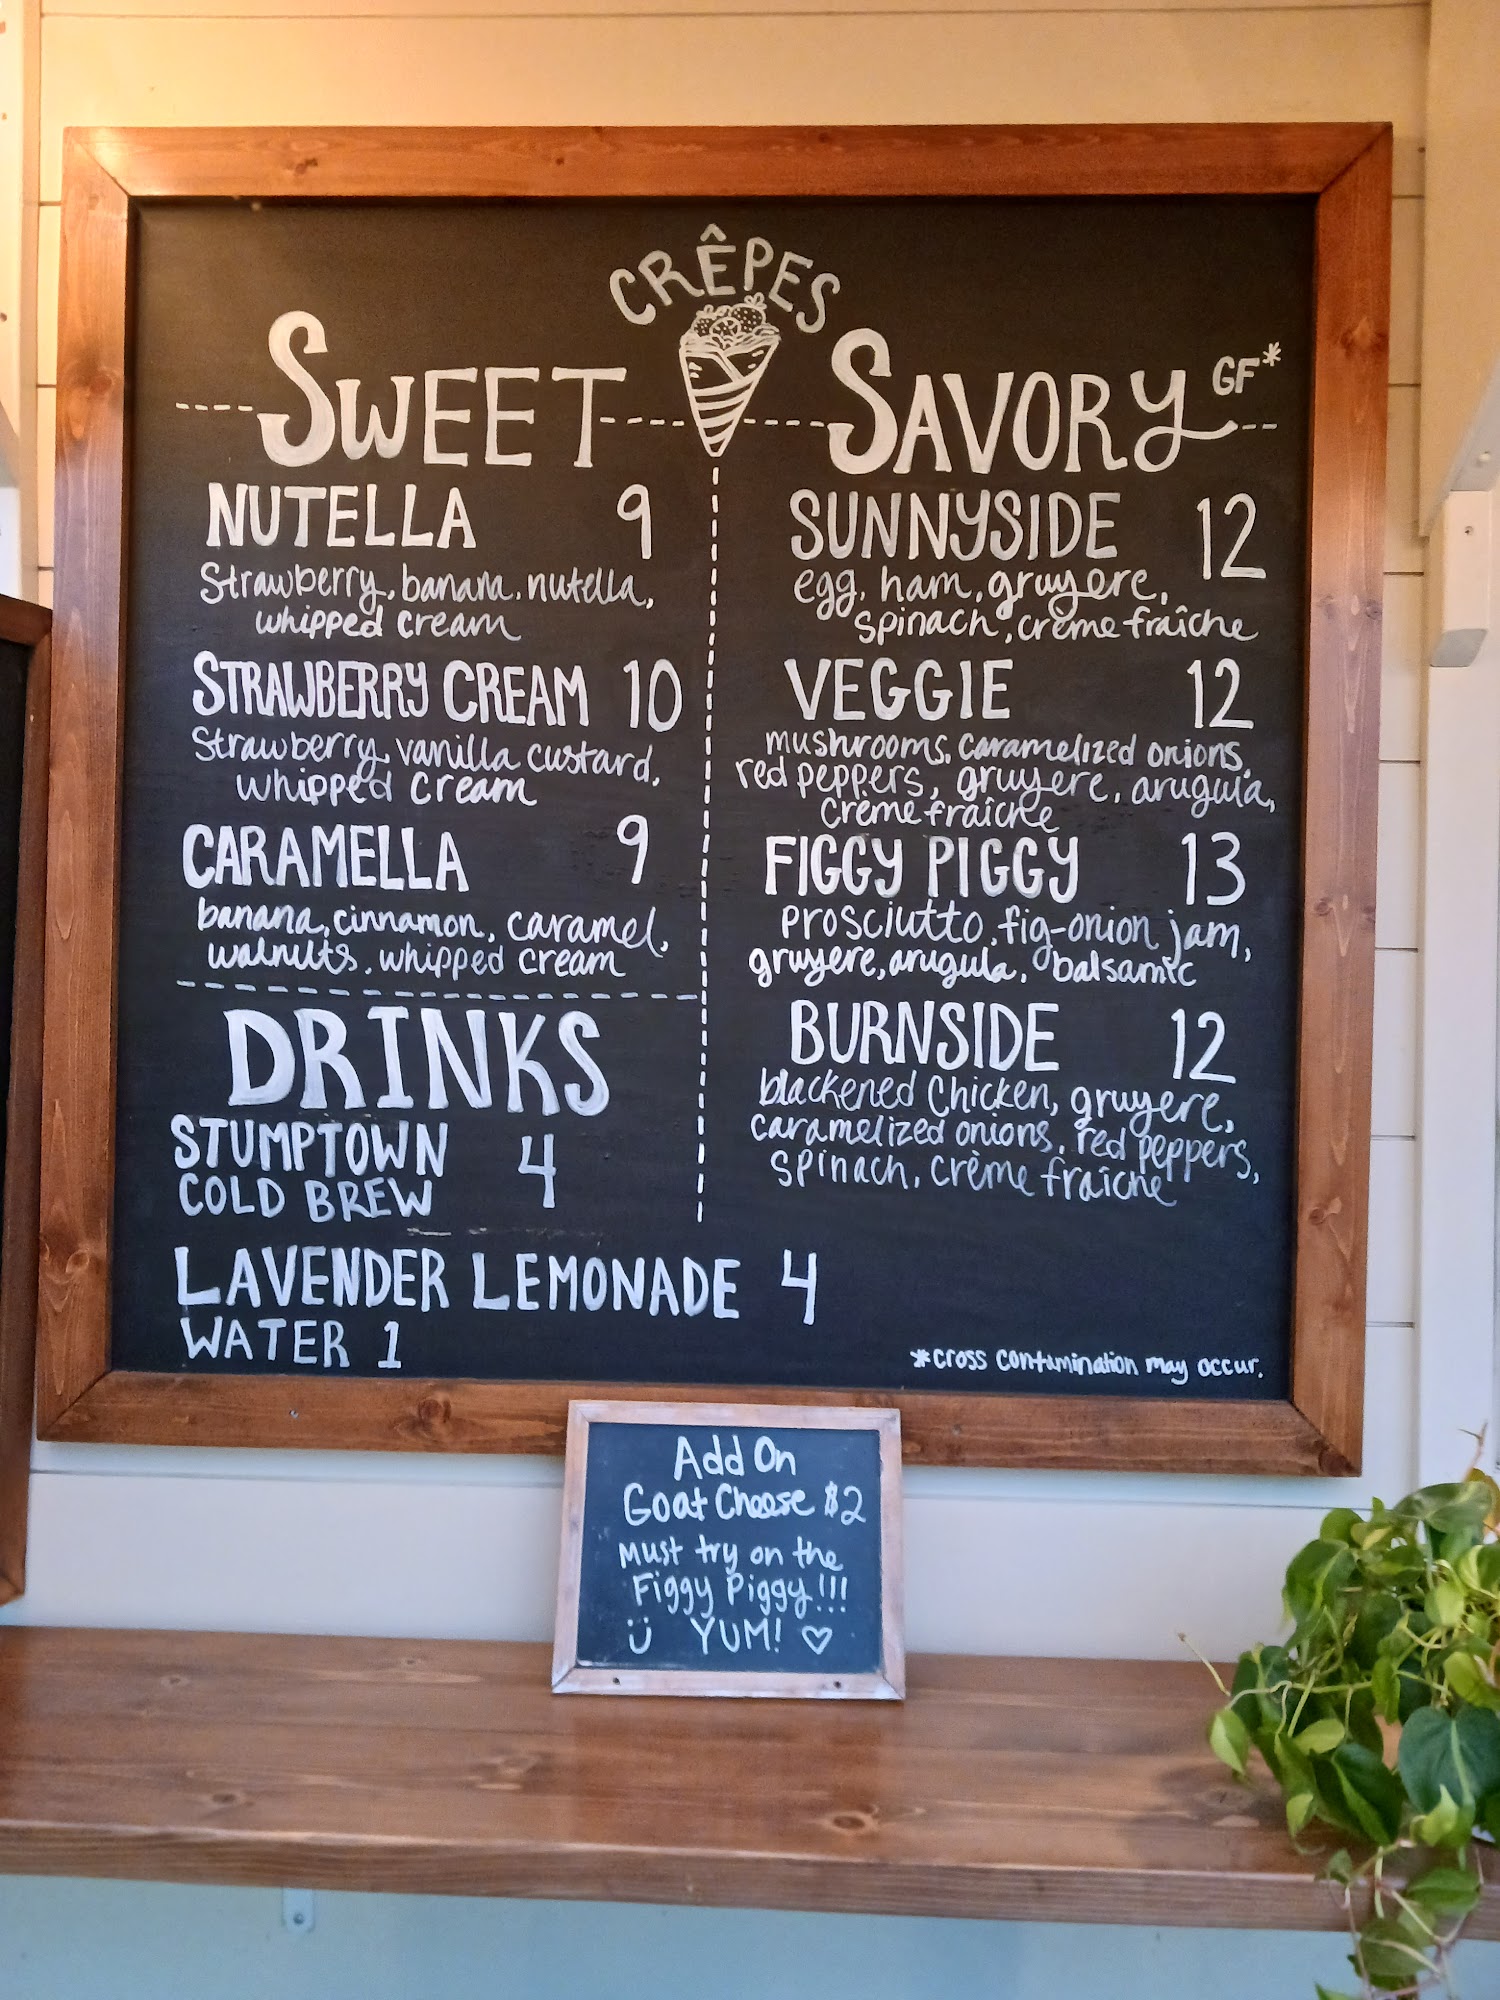 CRÊPES
SWEET
NUTELLA 9
Strawberry, banana, nutella,
whipped cream
STRAWBERRY CREAM 10
Strawberry, vanilla custard,
whipped cream
CARAMELLA 9
banana, cinnamon, caramel,
walnuts, whipped cream
DRINKS
STUMPTOWN 4
COLD BREW
LAVENDER LEMONADE 4
WATER 1
SAVORY GF*
SUNNYSIDE 12
egg, ham, gruyere,
spinach, crème fraîche
VEGGIE 12
mushrooms, caramelized onions,
red peppers, gruyere, arugula,
crème fraîche
FIGGY PIGGY 13
prosciutto, fig-onion jam,
gruyere, arugula, balsamic
BURNSIDE 12
blackened chicken, gruyere,
caramelized onions, red peppers,
spinach, crème fraîche
*cross contamination may occur.
Add On
Goat Cheese $2
Must try on the
Figgy Piggy!!!
YUM!